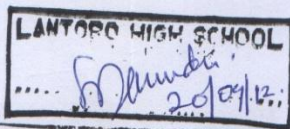 LANTORO HIGH SCHOOL
20/09/12